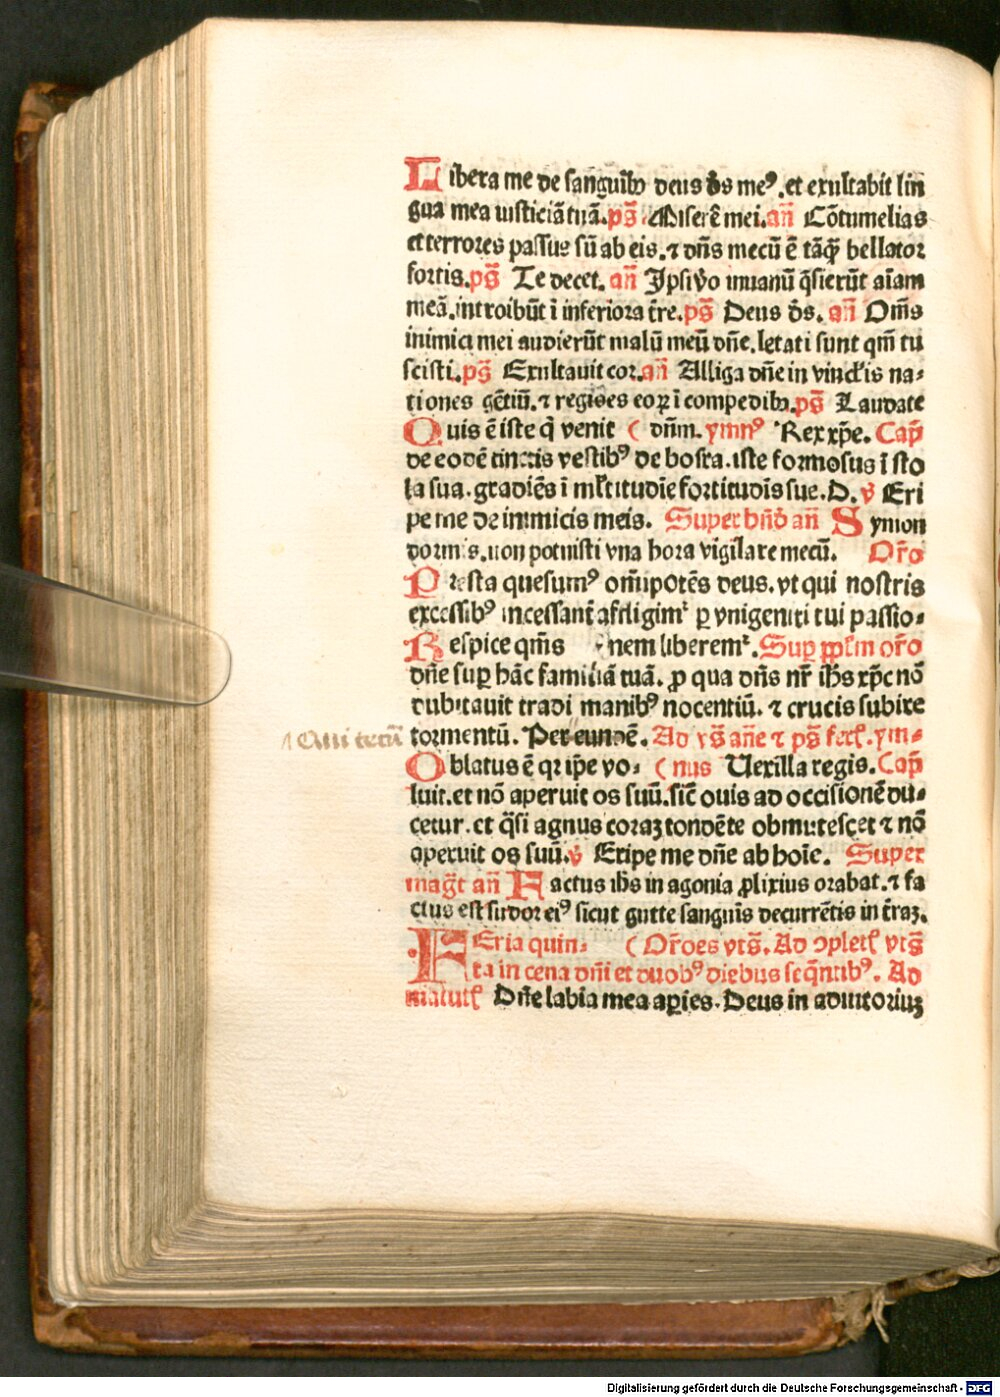 Libera me de sanguībꝰ deus ds meꝰ.et exultabit lin
gua mea iusticiā tuā.ps̄ Miserē mei.an̄ Cōtumelias
et terrores passus sū ab eis.⁊ dn̄s mecū ē tāq̄ bellator
fortis.ps̄ Te decet. an̄ Ipsi v̊o in uanū q̄sierūt aīam
meā.introibūt ī inferiora t̄re.ps̄ Deus ds. an̄ Om̄s
inimici mei audierūt malū meū dn̄e.letati sunt qm̄ tu
fecisti.ps̄ Exultauit cor.an̄ Alliga dn̄e in vinclis na-
tiones gētiū.⁊ reges eoꝝ ī compedibꝰ.ps̄ Laudate
Quis ē iste q̄ venit ( dn̄m. ymnꝰ Rex xp̄e. Cap̄
de edō tinctis vestibꝰ de bosra.iste formosus ī sto
la sua.gradiēs ī ml̄titudīe fortitudīs sue.D. v̄ Eri
pe me de inimicis meis. Super bn̄d an̄ Symon
dormis.non potuisti vna hora vigilare mecū. Or̄o
Presta quesumꝰ om̄ipotēs deus.vt qui nostris
excessibꝰ incessant̄ affligimᷣ ꝑ vnigeniti tui passio-
Respice qm̄s ( nem liberemᷣ. Suꝑ pp̄lm or̄o
dn̄e suꝑ hāc familiā tuā. ꝓ qua dn̄s nr̄ ih̄s xp̄c nō
dubitauit tradi manibꝰ nocentiū. ⁊ crucis subire
tormentū. Per eundē. Ad vs̄ an̄e ⁊ ps̄ fer̄. ym-
Qui tecū
Oblatus ē qr ip̄e vo- ( nus Uexilla regis. Cap̄
luit.et nō aperuit os suū.sic̄ ouis ad occisionē du-
cetur.et q̄si agnus coraꝫ tondēte obmutescet ⁊ nō
aperuit os suū.v̄ Eripe me dn̄e ab hoīe. Super
mag̅t an̄ Factus ih̄s in agonia ꝓlixius orabat.⁊ fa
ctus est sudor eiꝰ sicut gutte sanguīs decurrētis in t̄raꝫ.
Feria quin- ( Or̄oes vts̄. Ad ↄplet̄ vts̄
ta in cena dn̄i et duobꝰ diebus seq̄ntibꝰ. Ad
matut̄ Dn̄e labia mea aꝑies. Deus in adiutoriuꝫ
Digitalisierung gefördert durch die Deutsche Forschungsgemeinschaft - DFG